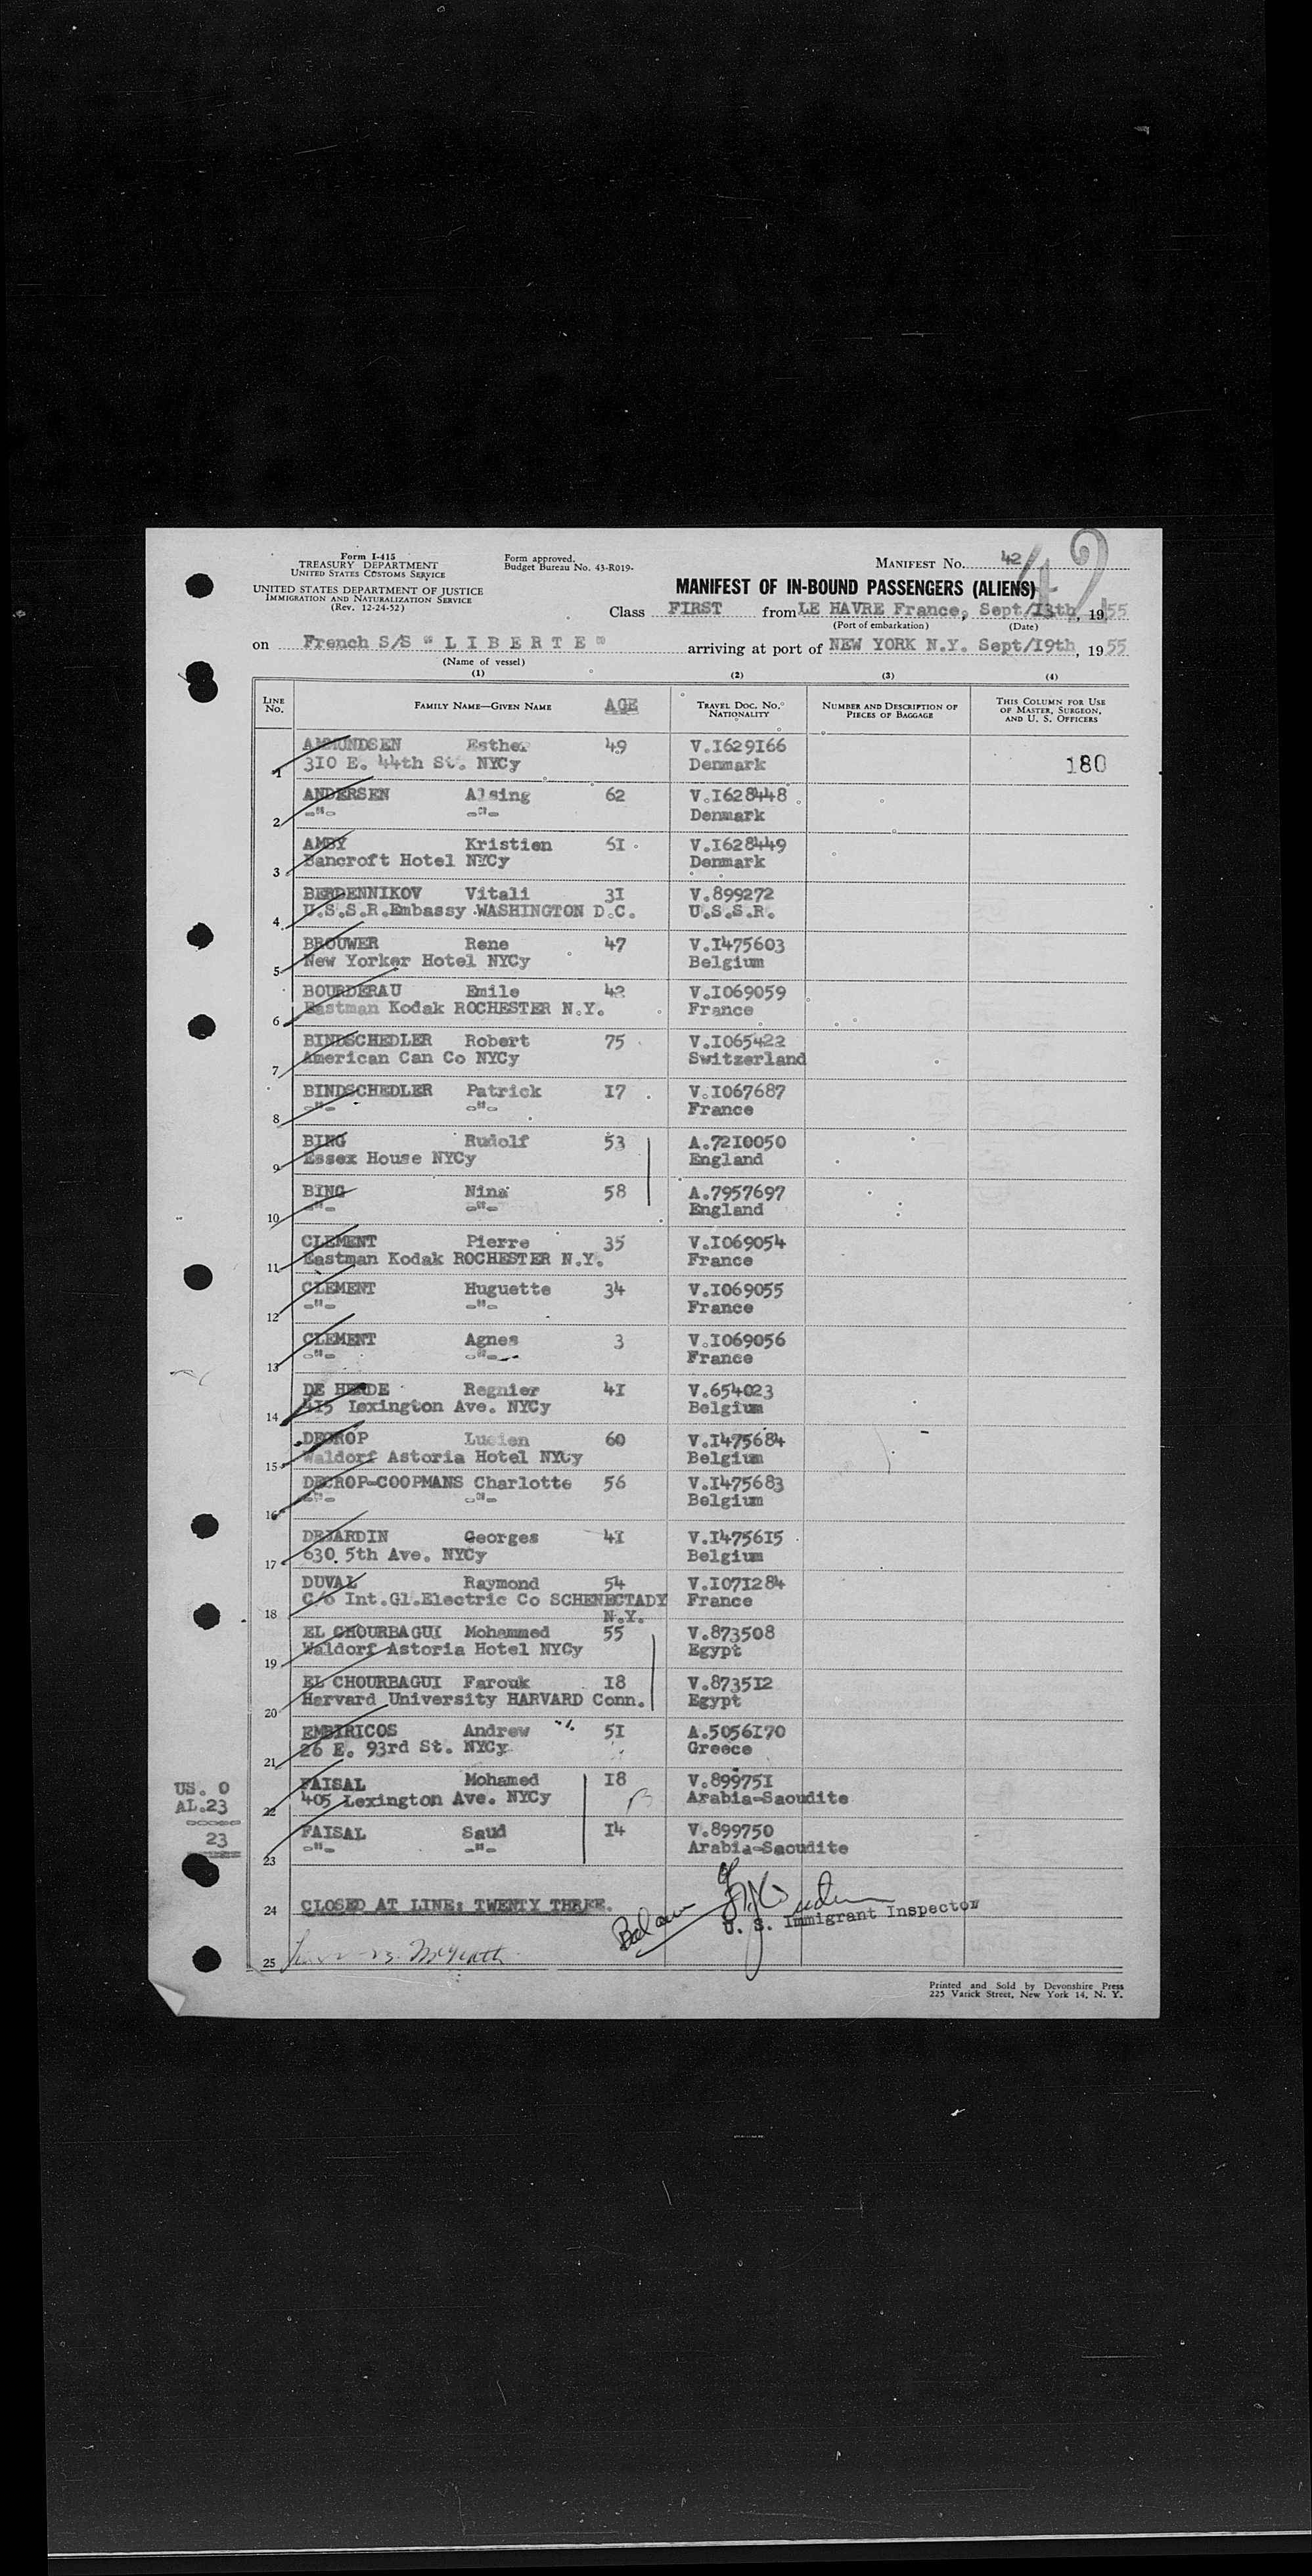 Form I-415
TREASURY DEPARTMENT
UNITED STATES CUSTOMS SERVICE
UNITED STATES DEPARTMENT OF JUSTICE
IMMIGRATION AND NATURALIZATION SERVICE
(Rev. 12-24-52)
Form approved.
Budget Bureau No. 43-R019-
MANIFEST No. 42
42
MANIFEST OF IN-BOUND PASSENGERS (ALIENS)
Class FIRST from LE HAVRE France, Sept/13th, 1955
(Port of embarkation) (Date)
on French S/S "LIBERTE" arriving at port of NEW YORK N.Y. Sept/19th, 1955
(Name of vessel)
(1) (2) (3) (4)
LINE No. FAMILY NAME—GIVEN NAME AGE TRAVEL DOC. NO. NATIONALITY NUMBER AND DESCRIPTION OF PIECES OF BAGGAGE THIS COLUMN FOR USE OF MASTER, SURGEON, AND U. S. OFFICERS
AMMUNDSEN Esther 49 V.I629I66
1 3I0 E. 44th St. NYCy Denmark 180
ANDERSEN Alsing 62 V.I628448
2 -"- -"- Denmark
AMBY Kristien 5I V.I628449
3 Bancroft Hotel NYCy Denmark
BERDENNIKOV Vitali 3I V.899272
4 U.S.S.R.Embassy WASHINGTON D.C. U.S.S.R.
BROUWER Rene 47 V.I475603
5 New Yorker Hotel NYCy Belgium
BOURDERAU Emile 42 V.I069059
6 Eastman Kodak ROCHESTER N.Y. France
BINDSCHEDLER Robert 75 V.I065422
7 American Can Co NYCy Switzerland
BINDSCHEDLER Patrick I7 V.I067687
8 -"- -"- France
BING Rudolf 53 A.72I0050
9 Essex House NYCy England
BING Nina 58 A.7957697
10 -"- -"- England
CLEMENT Pierre 35 V.I069054
11 Eastman Kodak ROCHESTER N.Y. France
CLEMENT Huguette 34 V.I069055
12 -"- -"- France
CLEMENT Agnes 3 V.I069056
13 -"- -"- France
DE HEMDE Regnier 4I V.654023
14 4I5 Lexington Ave. NYCy Belgium
DECROP Lucien 60 V.I475684
15 Waldorf Astoria Hotel NYCy Belgium
DECROP-COOPMANS Charlotte 56 V.I475683
16 -"- -"- Belgium
DEJARDIN Georges 4I V.I4756I5
17 630 5th Ave. NYCy Belgium
DUVAL Raymond 54 V.I07I284
C/o Int.Gl.Electric Co SCHENECTADY France
18 N.Y.
EL CHOURBAGUI Mohammed 55 V.873508
19 Waldorf Astoria Hotel NYCy Egypt
EL CHOURBAGUI Farouk I8 V.8735I2
20 Harvard University HARVARD Conn. Egypt
EMBIRICOS Andrew 5I A.5056I70
21 26 E. 93rd St. NYCy Greece
FAISAL Mohamed I8 V.89975I
22 405 Lexington Ave. NYCy Arabia-Saoudite
FAISAL Saud I4 V.899750
23 -"- -"- Arabia-Saoudite
US. 0
AL.23
23
24 CLOSED AT LINE: TWENTY THREE.
U. S. Immigrant Inspector
25
Printed and Sold by Devonshire Press
225 Varick Street, New York 14, N. Y.